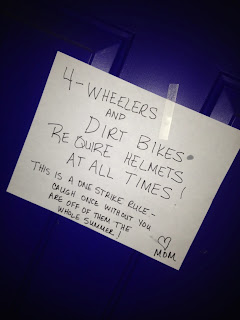 4-WHEELERS
AND
DIRT BIKES
REQUIRE HELMETS
AT ALL TIMES!
THIS IS A ONE STRIKE RULE-
CAUGH ONCE WITHOUT YOU
ARE OFF OF THEM THE
WHOLE SUMMER!
♡
MOM